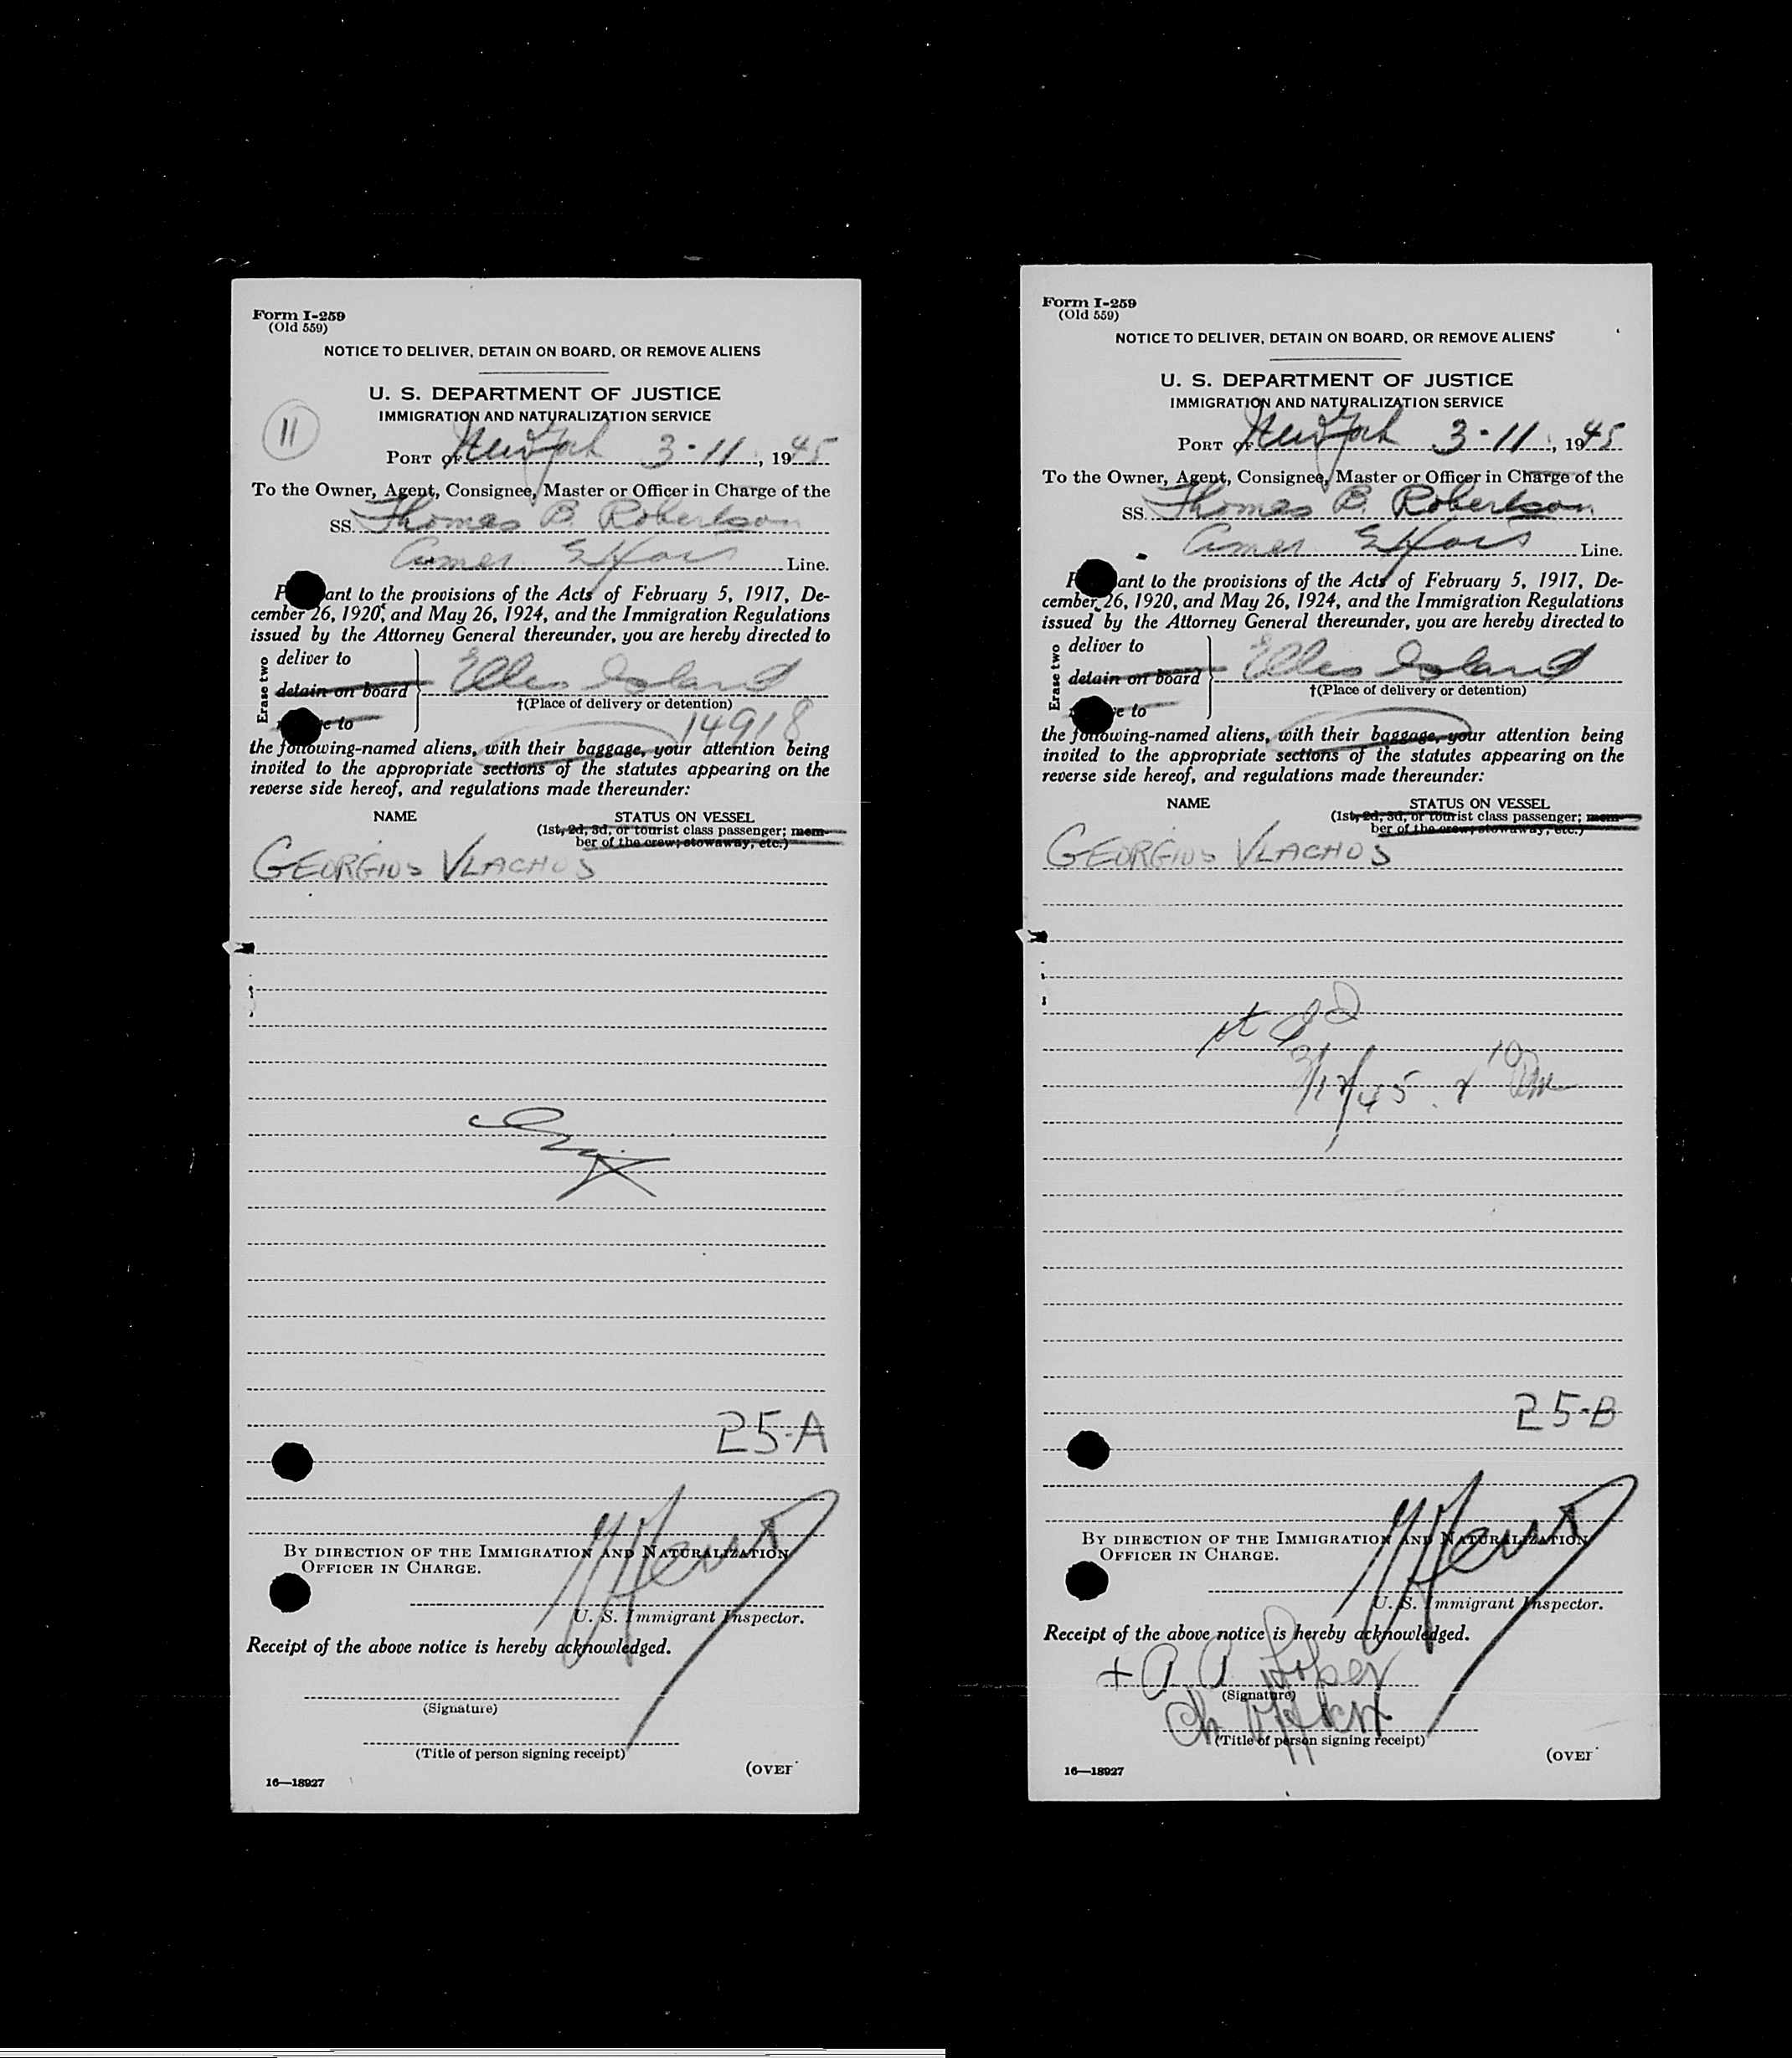 Form I-259
(Old 559)
NOTICE TO DELIVER, DETAIN ON BOARD, OR REMOVE ALIENS
U. S. DEPARTMENT OF JUSTICE
IMMIGRATION AND NATURALIZATION SERVICE
11
PORT OF New York 3-11, 1945
To the Owner, Agent, Consignee, Master or Officer in Charge of the
SS. Thomas B. Robertson
Amer. Line.
ant to the provisions of the Acts of February 5, 1917, De-
cember 26, 1920, and May 26, 1924, and the Immigration Regulations
issued by the Attorney General thereunder, you are hereby directed to
Erase two
deliver to
detain on board
e to
Ellis Island
†(Place of delivery or detention)
14918
the following-named aliens, with their baggage, your attention being
invited to the appropriate sections of the statutes appearing on the
reverse side hereof, and regulations made thereunder:
NAME
STATUS ON VESSEL
(1st, 2d, 3d, or tourist class passenger; mem-
ber of the crew; stowaway, etc.)
GEORGIOS VLACHOS
25-A
BY DIRECTION OF THE IMMIGRATION AND NATURALIZATION
OFFICER IN CHARGE.
U. S. Immigrant Inspector.
Receipt of the above notice is hereby acknowledged.
(Signature)
(Title of person signing receipt)
(OVER
16—18927
Form I-259
(Old 559)
NOTICE TO DELIVER, DETAIN ON BOARD, OR REMOVE ALIENS
U. S. DEPARTMENT OF JUSTICE
IMMIGRATION AND NATURALIZATION SERVICE
PORT OF New York 3-11, 1945
To the Owner, Agent, Consignee, Master or Officer in Charge of the
SS. Thomas B. Robertson
Amer. Line.
ant to the provisions of the Acts of February 5, 1917, De-
cember 26, 1920, and May 26, 1924, and the Immigration Regulations
issued by the Attorney General thereunder, you are hereby directed to
Erase two
deliver to
detain on board
e to
Ellis Island
†(Place of delivery or detention)
the following-named aliens, with their baggage, your attention being
invited to the appropriate sections of the statutes appearing on the
reverse side hereof, and regulations made thereunder:
NAME
STATUS ON VESSEL
(1st, 2d, 3d, or tourist class passenger; mem-
ber of the crew; stowaway, etc.)
GEORGIOS VLACHOS
3/12/45
25-B
BY DIRECTION OF THE IMMIGRATION AND NATURALIZATION
OFFICER IN CHARGE.
U. S. Immigrant Inspector.
Receipt of the above notice is hereby acknowledged.
(Signature)
(Title of person signing receipt)
(OVER
16—18927